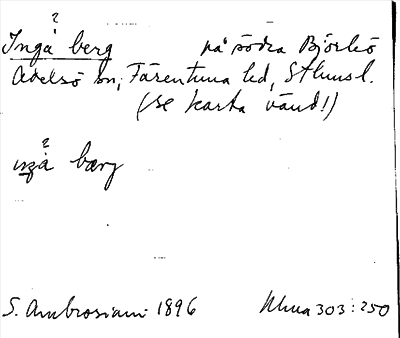 ?
Ingå berg på södra Björkö
Adelsö sn, Färentuna hd, Sthms l.
(se karta vänd!)
?
ingå bærg
S. Ambrosiani 1896 Uhua 303:250